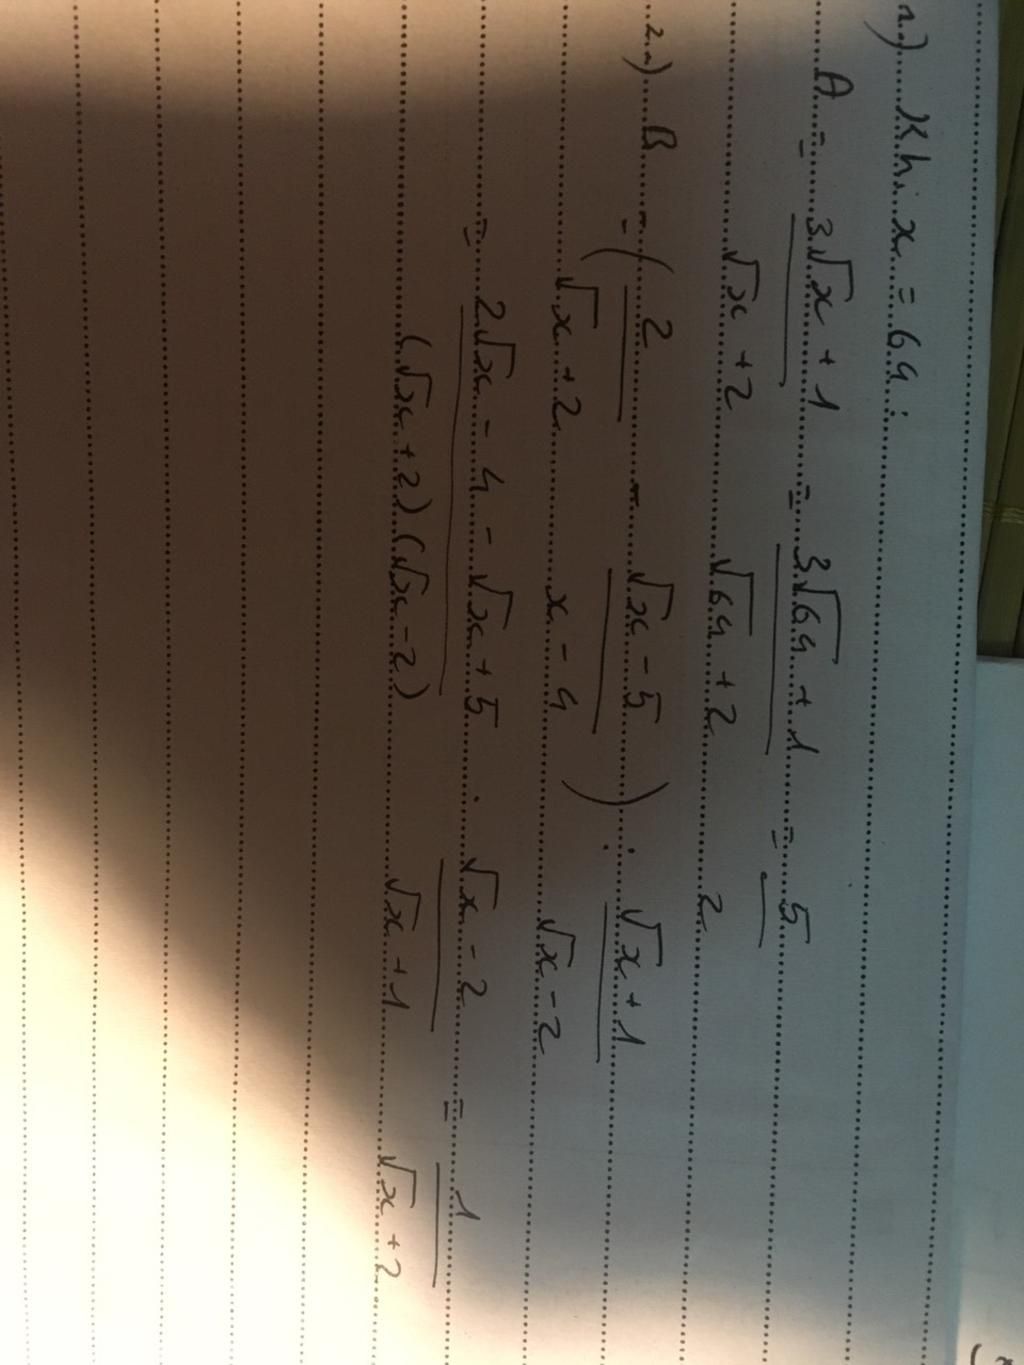 1.) Khi x = 64 :
A = (3√x + 1)/(√x + 2) = (3√64 + 1)/(√64 + 2) = 5/2
2.) B = (2/(√x + 2) - (√x - 5)/(x - 4)) : (√x + 1)/(√x - 2)
= (2√x - 4 - √x + 5)/((√x + 2)(√x - 2)) . (√x - 2)/(√x + 1) = 1/(√x + 2)